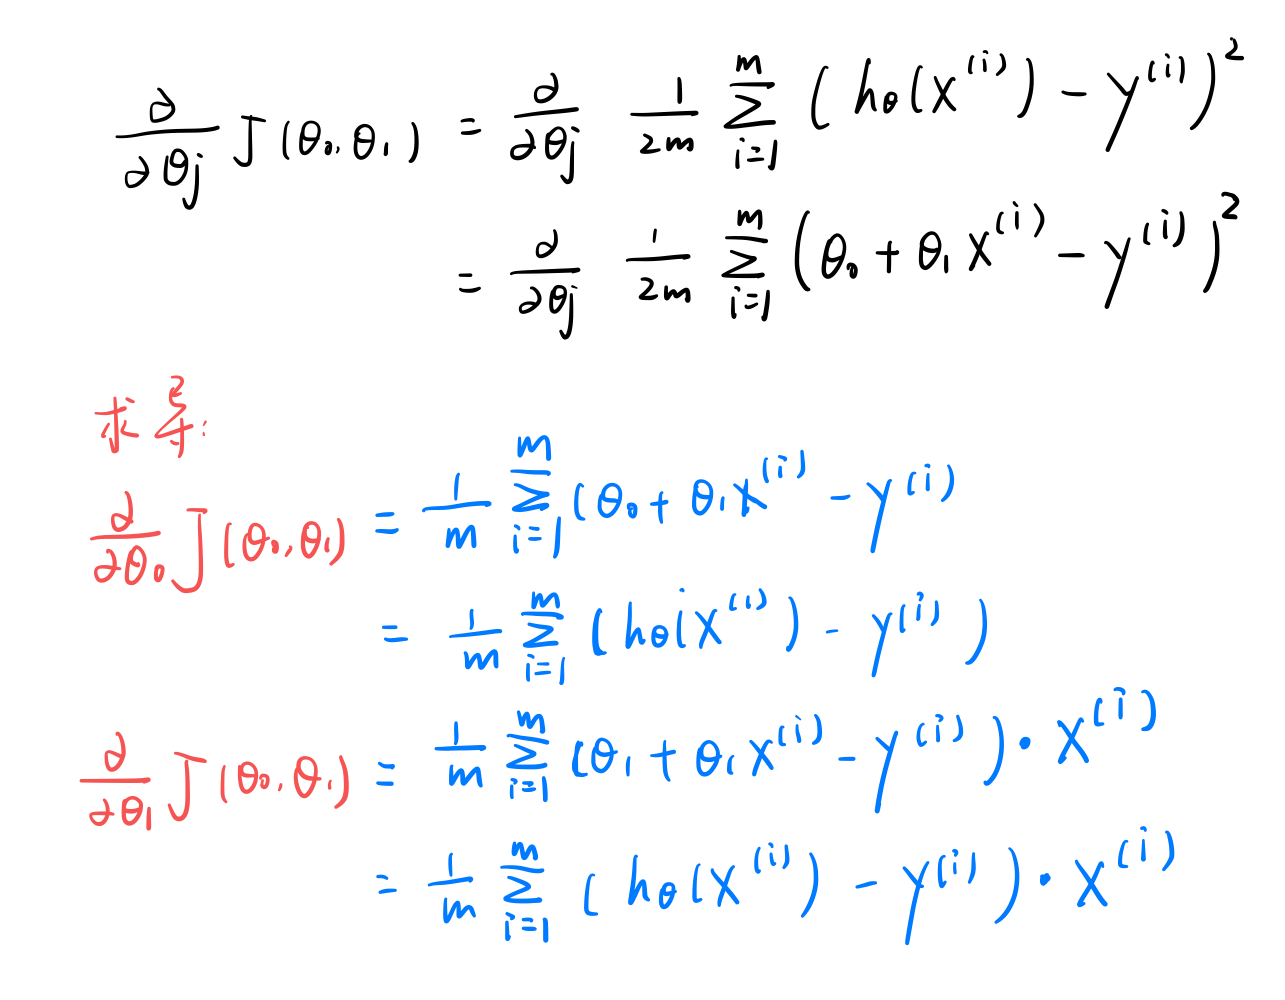 ∂/∂θj J(θ₀,θ₁) = ∂/∂θj 1/2m ∑_{i=1}^{m} (hθ(x^(i)) − y^(i))²
= ∂/∂θj 1/2m ∑_{i=1}^{m} (θ₀ + θ₁x^(i) − y^(i))²
求导:
∂/∂θ₀ J(θ₀,θ₁) = 1/m ∑_{i=1}^{m} (θ₀ + θ₁x^(i) − y^(i)
= 1/m ∑_{i=1}^{m} (hθ(x^(i)) − y^(i))
∂/∂θ₁ J(θ₀,θ₁) = 1/m ∑_{i=1}^{m} (θ₁ + θ₁x^(i) − y^(i))·x^(i)
= 1/m ∑_{i=1}^{m} (hθ(x^(i)) − y^(i))·x^(i)